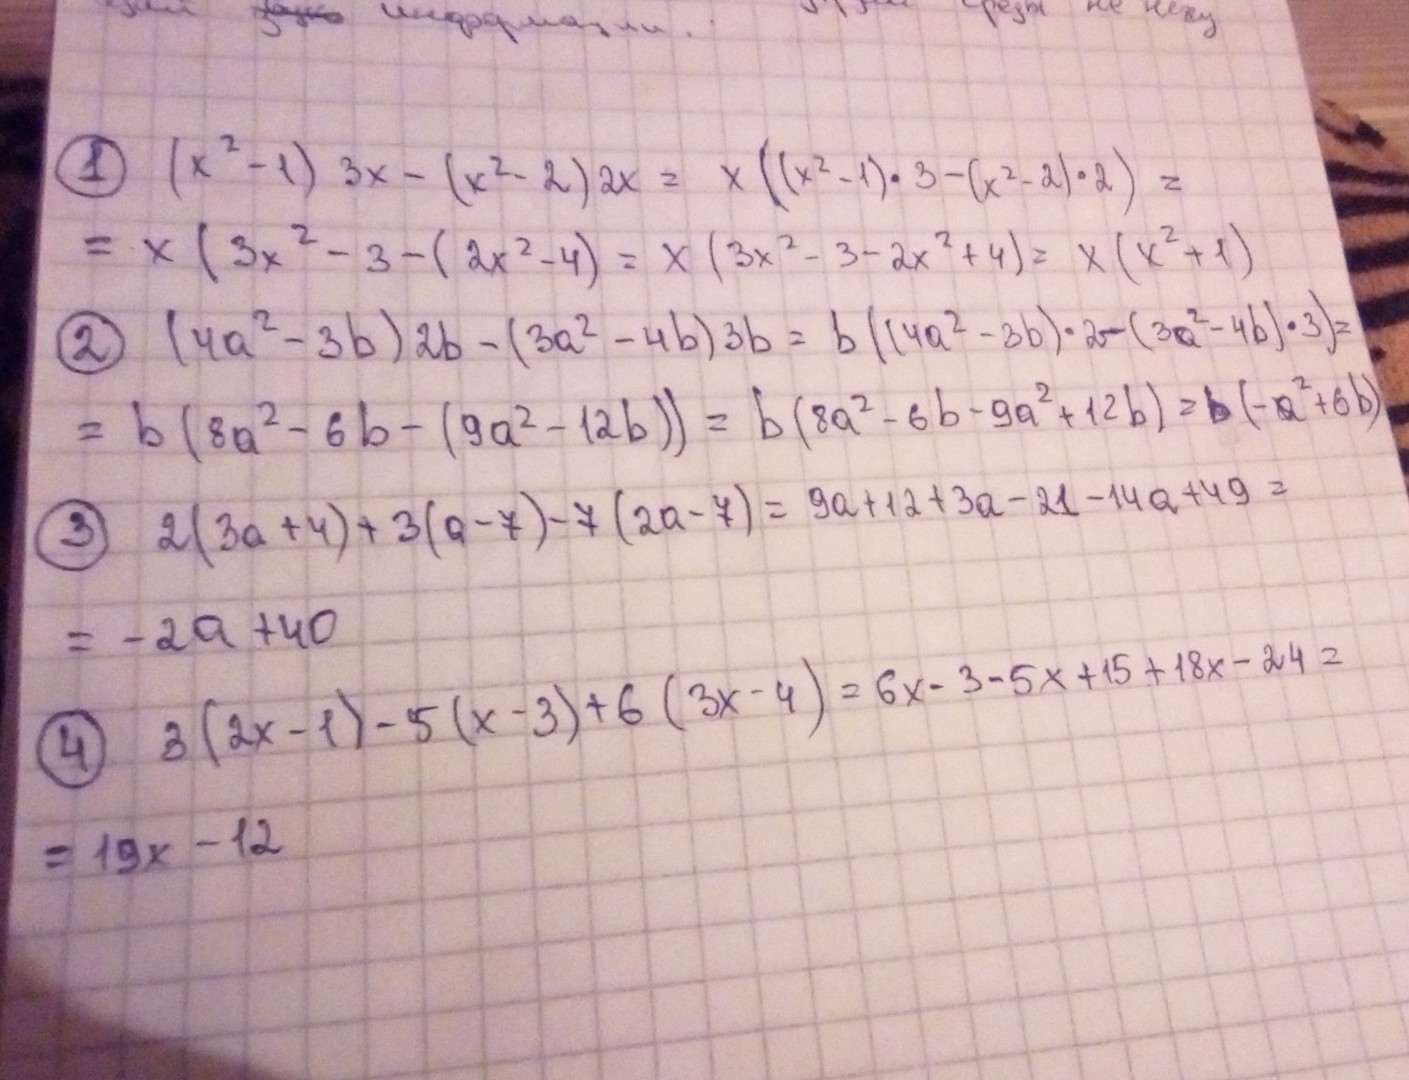 информации. срезы не
① (x² - 1) 3x - (x² - 2) 2x = x ((x² - 1)·3 - (x² - 2)·2) =
= x (3x² - 3 - (2x² - 4) = x (3x² - 3 - 2x² + 4) = x (x² + 1)
② (4a² - 3b) 2b - (3a² - 4b) 3b = b ((4a² - 3b)·2 - (3a² - 4b)·3) =
= b (8a² - 6b - (9a² - 12b)) = b (8a² - 6b - 9a² + 12b) = b (-a² + 6b)
③ 2(3a + 4) + 3(a - 7) - 7 (2a - 7) = 9a + 12 + 3a - 21 - 14a + 49 =
= -2a + 40
④ 3 (2x - 1) - 5 (x - 3) + 6 (3x - 4) = 6x - 3 - 5x + 15 + 18x - 24 =
= 19x - 12